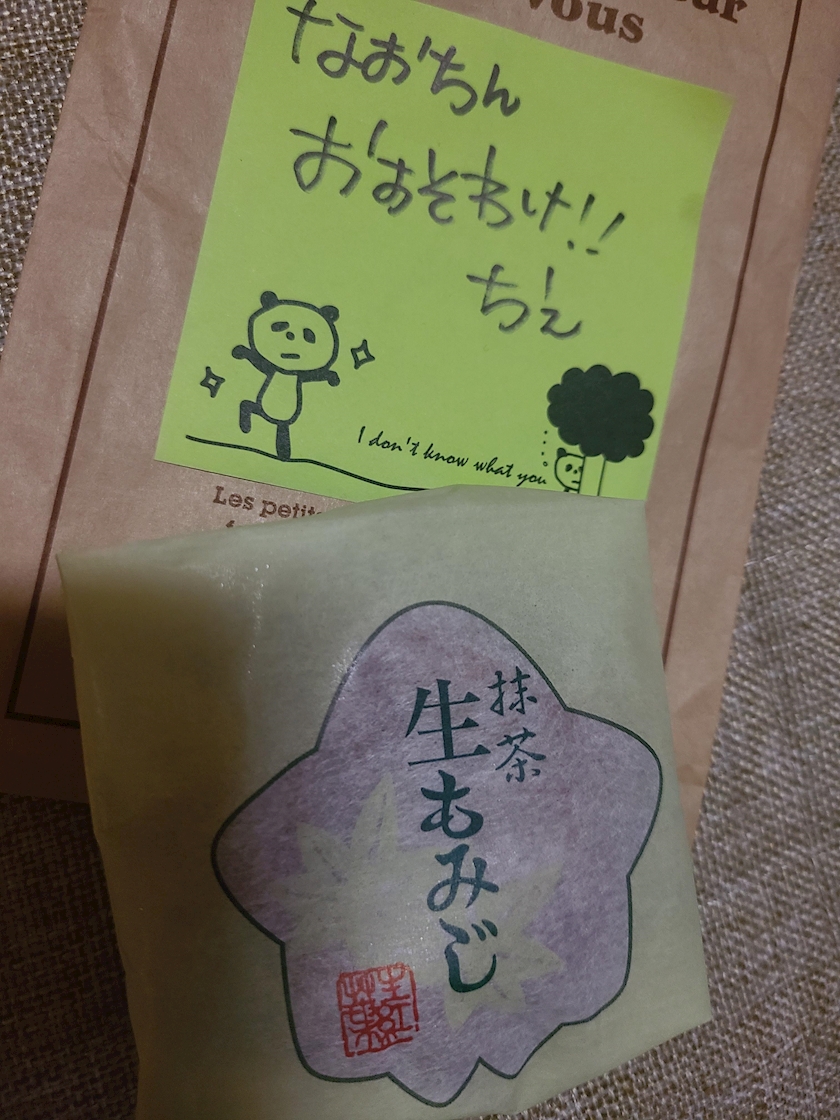 vous
なおちん
おおそわけ!!
ちえ
I don't know what you
Les petits
抹茶
生もみじ
生紅葉